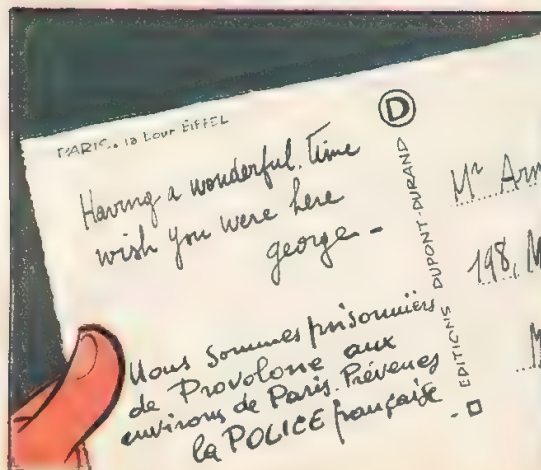 PARIS. la tour EIFFEL
Having a wonderful time
wish you were here
george-
Nous sommes prisonniers
de Provolone aux
environs de Paris. Prévenez
la POLICE française
D
EDITIONS DUPONT-DURAND
Mr Arm
198, M
M